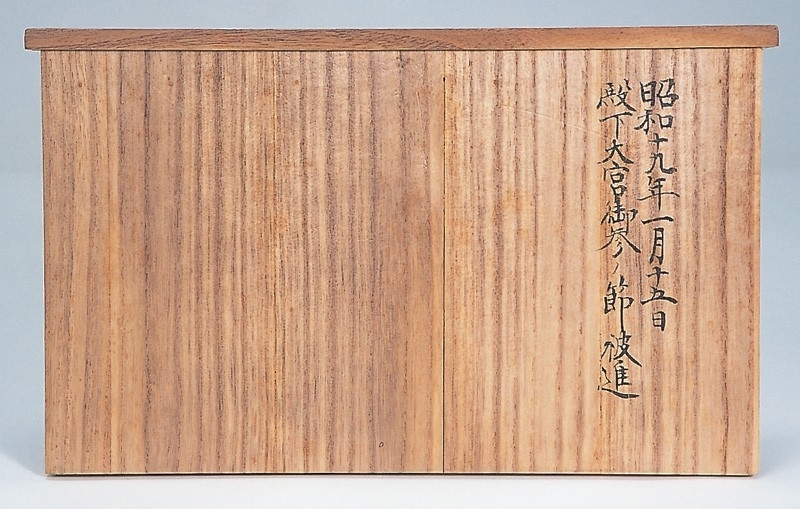 昭和十九年一月十五日
殿下大宮御参ノ節被進